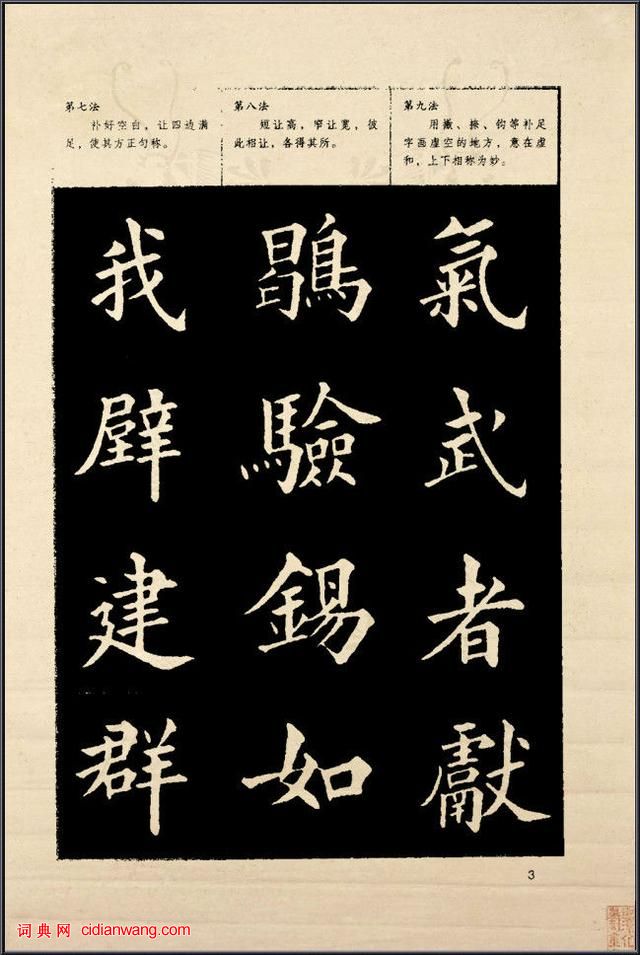 第七法
补好空白，让四边满
足，使其方正匀称。
第八法
短让高，窄让宽，彼
此相让，各得其所。
第九法
用撇、捺、钩等补足
字画虚空的地方，意在虚
和，上下相称为妙。
我
辟
建
群
驗
錫
如
氣
武
者
獻
3
词典网 cidianwang.com